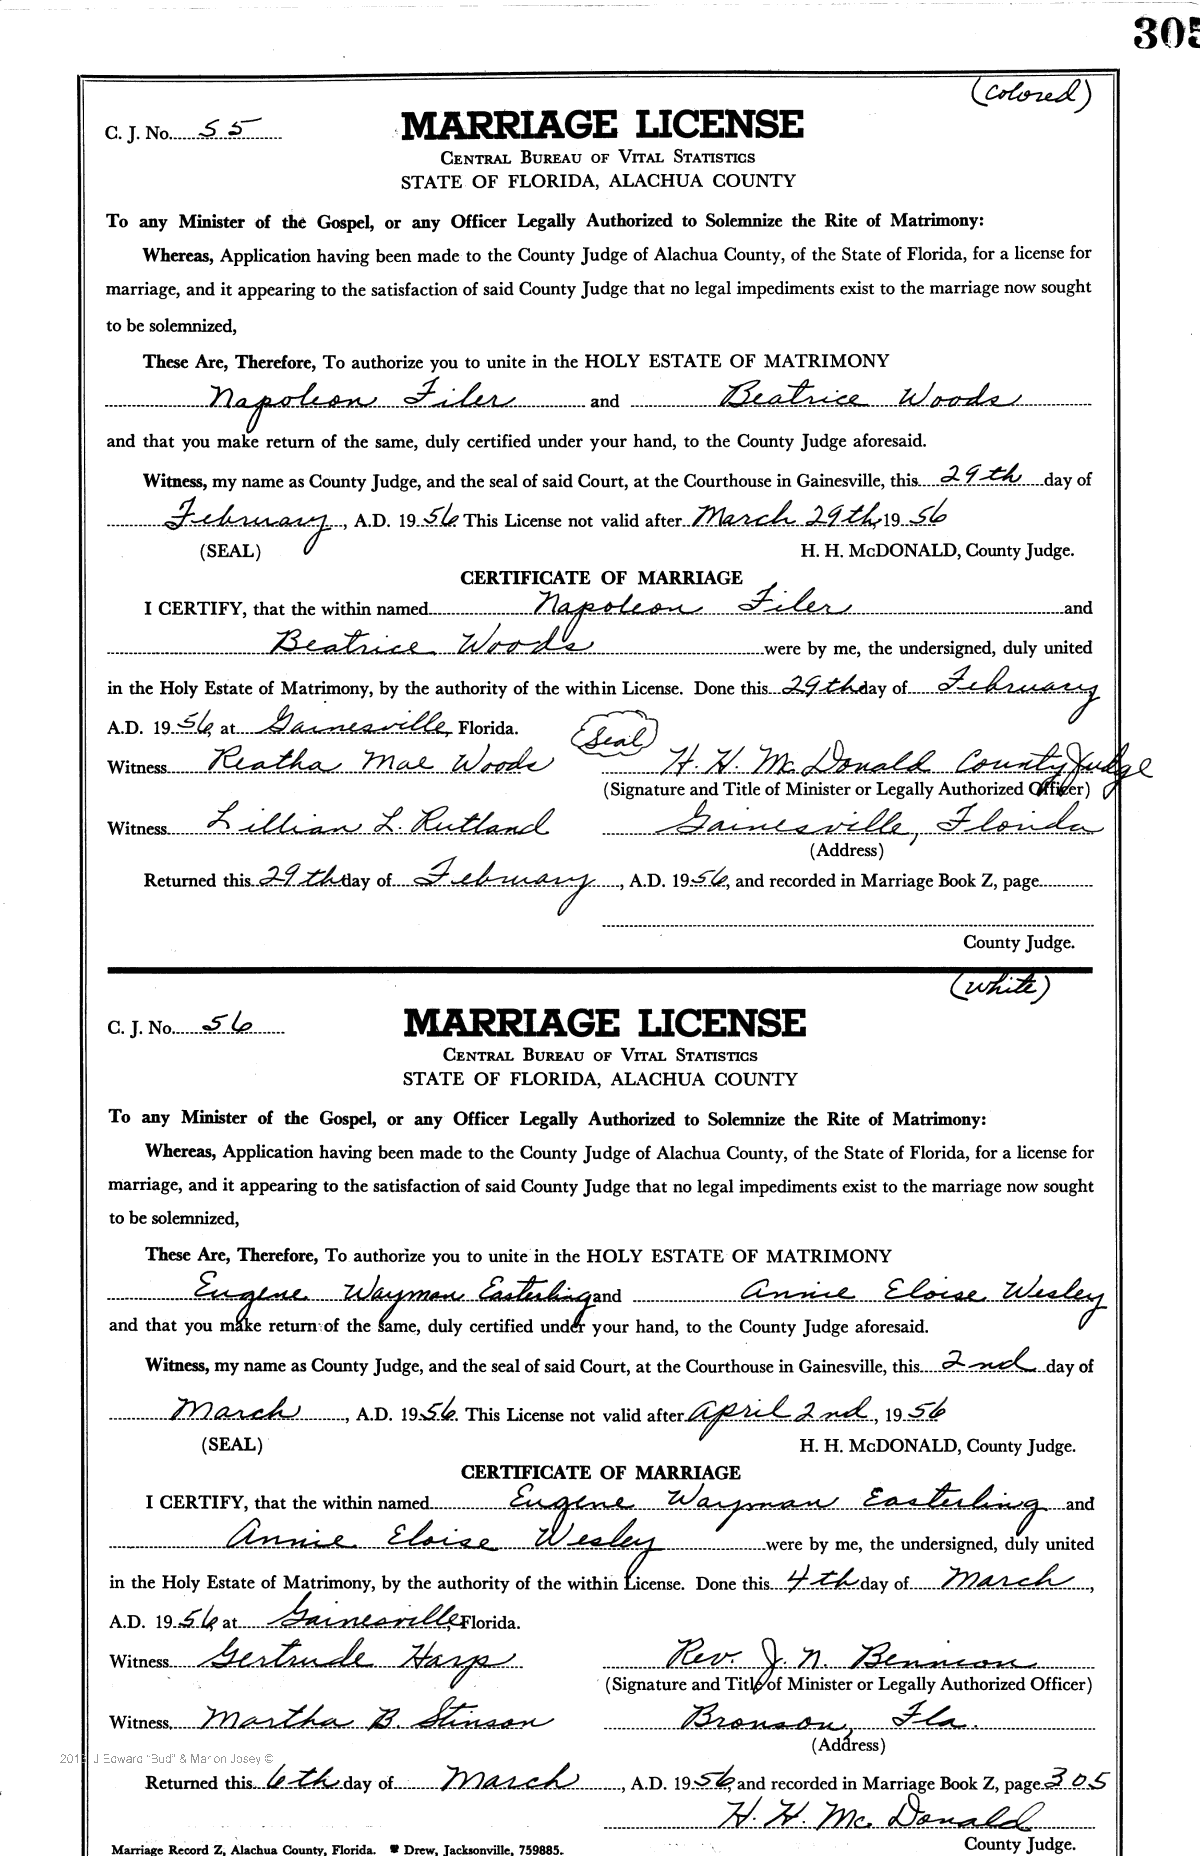 305
(colored)
C. J. No. 55 MARRIAGE LICENSE
CENTRAL BUREAU OF VITAL STATISTICS
STATE OF FLORIDA, ALACHUA COUNTY
To any Minister of the Gospel, or any Officer Legally Authorized to Solemnize the Rite of Matrimony:
Whereas, Application having been made to the County Judge of Alachua County, of the State of Florida, for a license for
marriage, and it appearing to the satisfaction of said County Judge that no legal impediments exist to the marriage now sought
to be solemnized,
These Are, Therefore, To authorize you to unite in the HOLY ESTATE OF MATRIMONY
Napoleon Filer and Beatrice Woods
and that you make return of the same, duly certified under your hand, to the County Judge aforesaid.
Witness, my name as County Judge, and the seal of said Court, at the Courthouse in Gainesville, this 29th day of
February, A.D. 1956 This License not valid after March 29th, 1956
(SEAL) H. H. McDONALD, County Judge.
CERTIFICATE OF MARRIAGE
I CERTIFY, that the within named Napoleon Filer and
Beatrice Woods were by me, the undersigned, duly united
in the Holy Estate of Matrimony, by the authority of the within License. Done this 29th day of February
A.D. 1956, at Gainesville, Florida. (Seal)
Witness Reatha Mae Woods H. H. McDonald County Judge
(Signature and Title of Minister or Legally Authorized Officer)
Witness Lillian L. Rutland Gainesville, Florida
(Address)
Returned this 29th day of February, A.D. 1956, and recorded in Marriage Book Z, page
County Judge.
(white)
C. J. No. 56 MARRIAGE LICENSE
CENTRAL BUREAU OF VITAL STATISTICS
STATE OF FLORIDA, ALACHUA COUNTY
To any Minister of the Gospel, or any Officer Legally Authorized to Solemnize the Rite of Matrimony:
Whereas, Application having been made to the County Judge of Alachua County, of the State of Florida, for a license for
marriage, and it appearing to the satisfaction of said County Judge that no legal impediments exist to the marriage now sought
to be solemnized,
These Are, Therefore, To authorize you to unite in the HOLY ESTATE OF MATRIMONY
Eugene Wayman Easterling and Annie Eloise Wesley
and that you make return of the same, duly certified under your hand, to the County Judge aforesaid.
Witness, my name as County Judge, and the seal of said Court, at the Courthouse in Gainesville, this 2nd day of
March, A.D. 1956. This License not valid after April 2nd, 1956
(SEAL) H. H. McDONALD, County Judge.
CERTIFICATE OF MARRIAGE
I CERTIFY, that the within named Eugene Wayman Easterling and
Annie Eloise Wesley were by me, the undersigned, duly united
in the Holy Estate of Matrimony, by the authority of the within License. Done this 4th day of March,
A.D. 1956, at Gainesville, Florida.
Witness Gertrude Harp Rev. J. N. Bennion
(Signature and Title of Minister or Legally Authorized Officer)
Witness, Martha B. Stinson Bronson, Fla.
(Address)
J Edward "Bud" & Marion Josey ©
Returned this 6th day of March, A.D. 1956, and recorded in Marriage Book Z, page 305
H. H. McDonald
County Judge.
Marriage Record Z, Alachua County, Florida. Drew, Jacksonville, 759885.